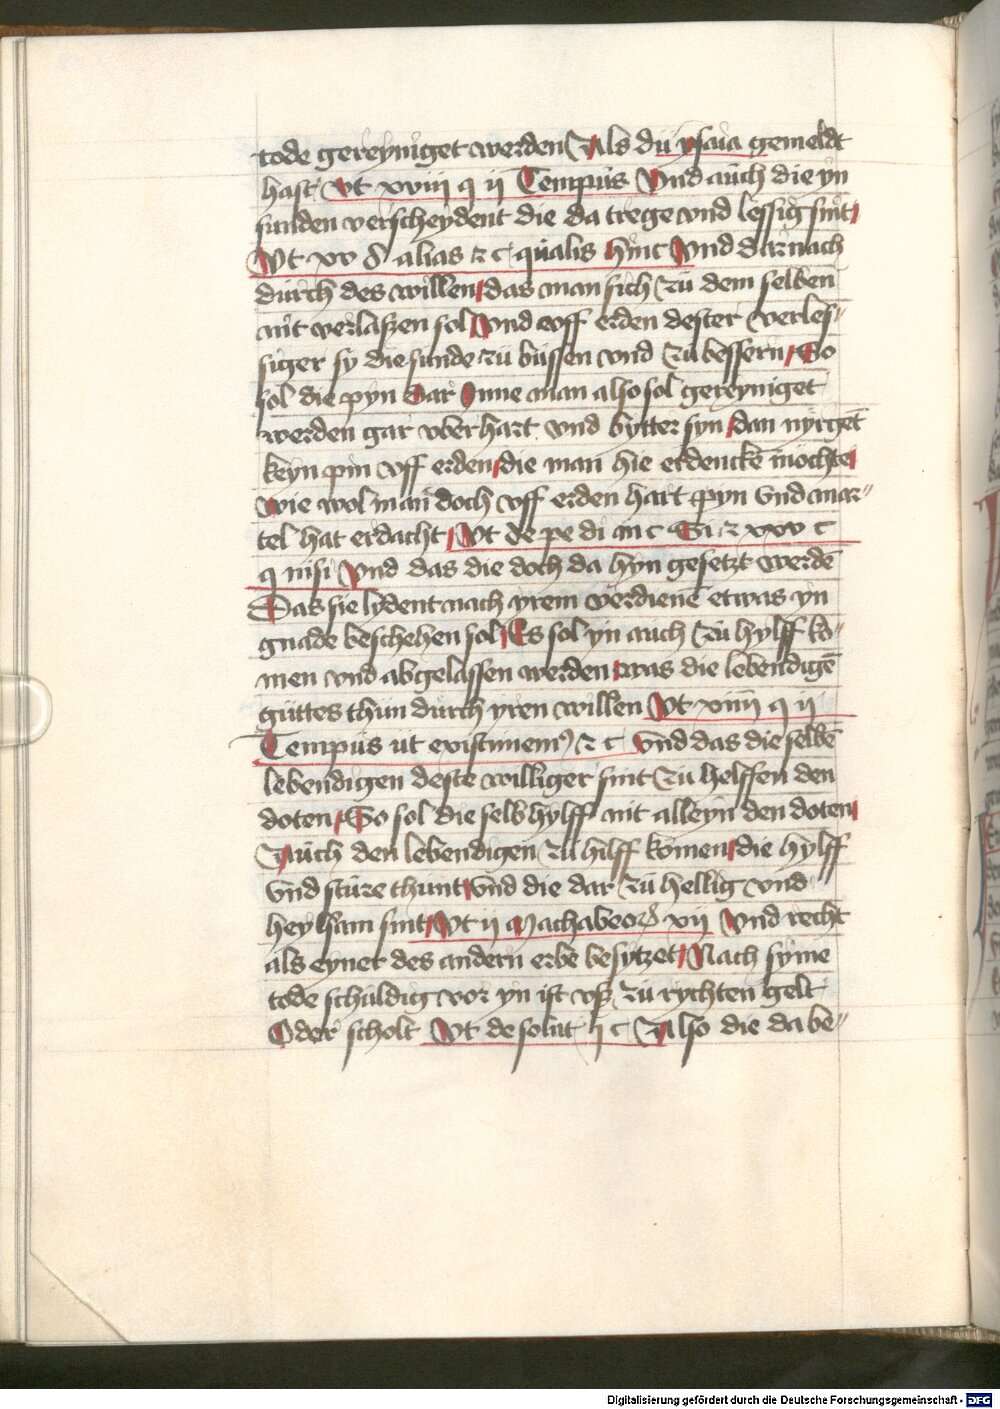 tode gereyniget werden Als du ysaia gemeldt
hast Ut xviij q ij Tempus Und auch die yn
sunden verscheydent die da trege vnd lessig sint
Ut xv d alias et c qualis hinc Und darnach
durch des willen das man sich zu dem selben
nit verlaszen sol Und vff erden dester verles-
siger sy die sunde zu bussen vnd zu bessern So
sol die pyn dar Inne man also sol gereyniget
werden gar vber hart vnd bytter syn dan nyrget
keyn pin vff erden die man hie erdencke mochte
Wie wol man doch vff erden hart pyn vnd mar-
tel hat erdacht Ut de pe di in c Si et xxv c
q nisi Und das die doch da hyn gesetzt werdē
Das sie lydent nach yrem verdienē etwas yn
gnade beschehen sol Es sol yn auch zu hylff ko-
men vnd abgelassen werden was die lebendigē
guttes thun durch yren willen Ut xiiij q ij
Tempus ut existimem9 et c Und das die selbē
lebendigen deste williger sint zu helffen den
doten So sol die selb hylff nit alleyn den doten
Auch den lebendigen zu hilff komen die hylff
vnd sture thunt vnd die dar zu hellig vnd
heylsam sint Ut ij Machabeor xij Und recht
als eyner des andern erbe besytzet Nach syme
tode schuldig vor yn ist vsz zu rychten gelt
Oder scholt Ut de solut j c Also die da be-
Digitalisierung gefördert durch die Deutsche Forschungsgemeinschaft - DFG